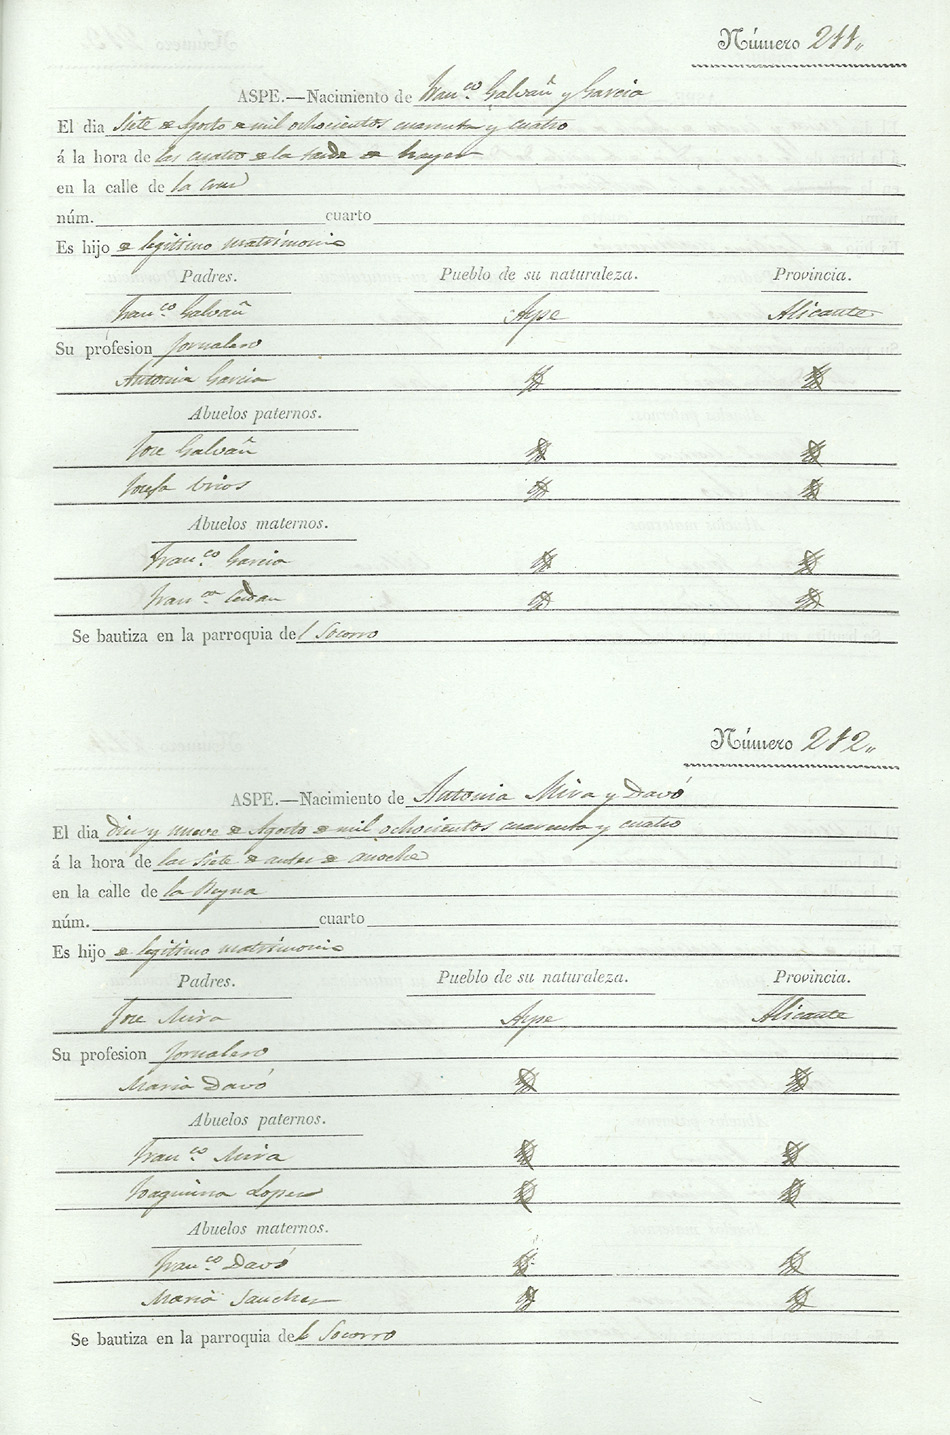 Número 211„
ASPE.—Nacimiento de Fran.co Galvañ y Garcia
El dia siete de Agosto de mil ochocientos cuarenta y cuatro
á la hora de las cuatro de la tarde de hayer
en la calle de la Cruz
núm. cuarto
Es hijo de legitimo matrimonio
Padres. Pueblo de su naturaleza. Provincia.
Fran.co Galvañ Aspe Alicante
Su profesion Jornalero
Antonia Garcia
Abuelos paternos.
Jose Galvañ
Josefa
Abuelos maternos.
Fran.co Garcia
Fran.ca
Se bautiza en la parroquia del Socorro
Número 212„
ASPE.—Nacimiento de Antonia Mira y Davó
El dia diez y nueve de Agosto de mil ochocientos cuarenta y cuatro
á la hora de las siete de antes de anoche
en la calle de la Reyna
núm. cuarto
Es hijo de legitimo matrimonio
Padres. Pueblo de su naturaleza. Provincia.
Jose Mira Aspe Alicante
Su profesion Jornalero
Maria Davó
Abuelos paternos.
Fran.co Mira
Joaquina Lopez
Abuelos maternos.
Fran.co Davó
Maria Sanchez
Se bautiza en la parroquia del Socorro